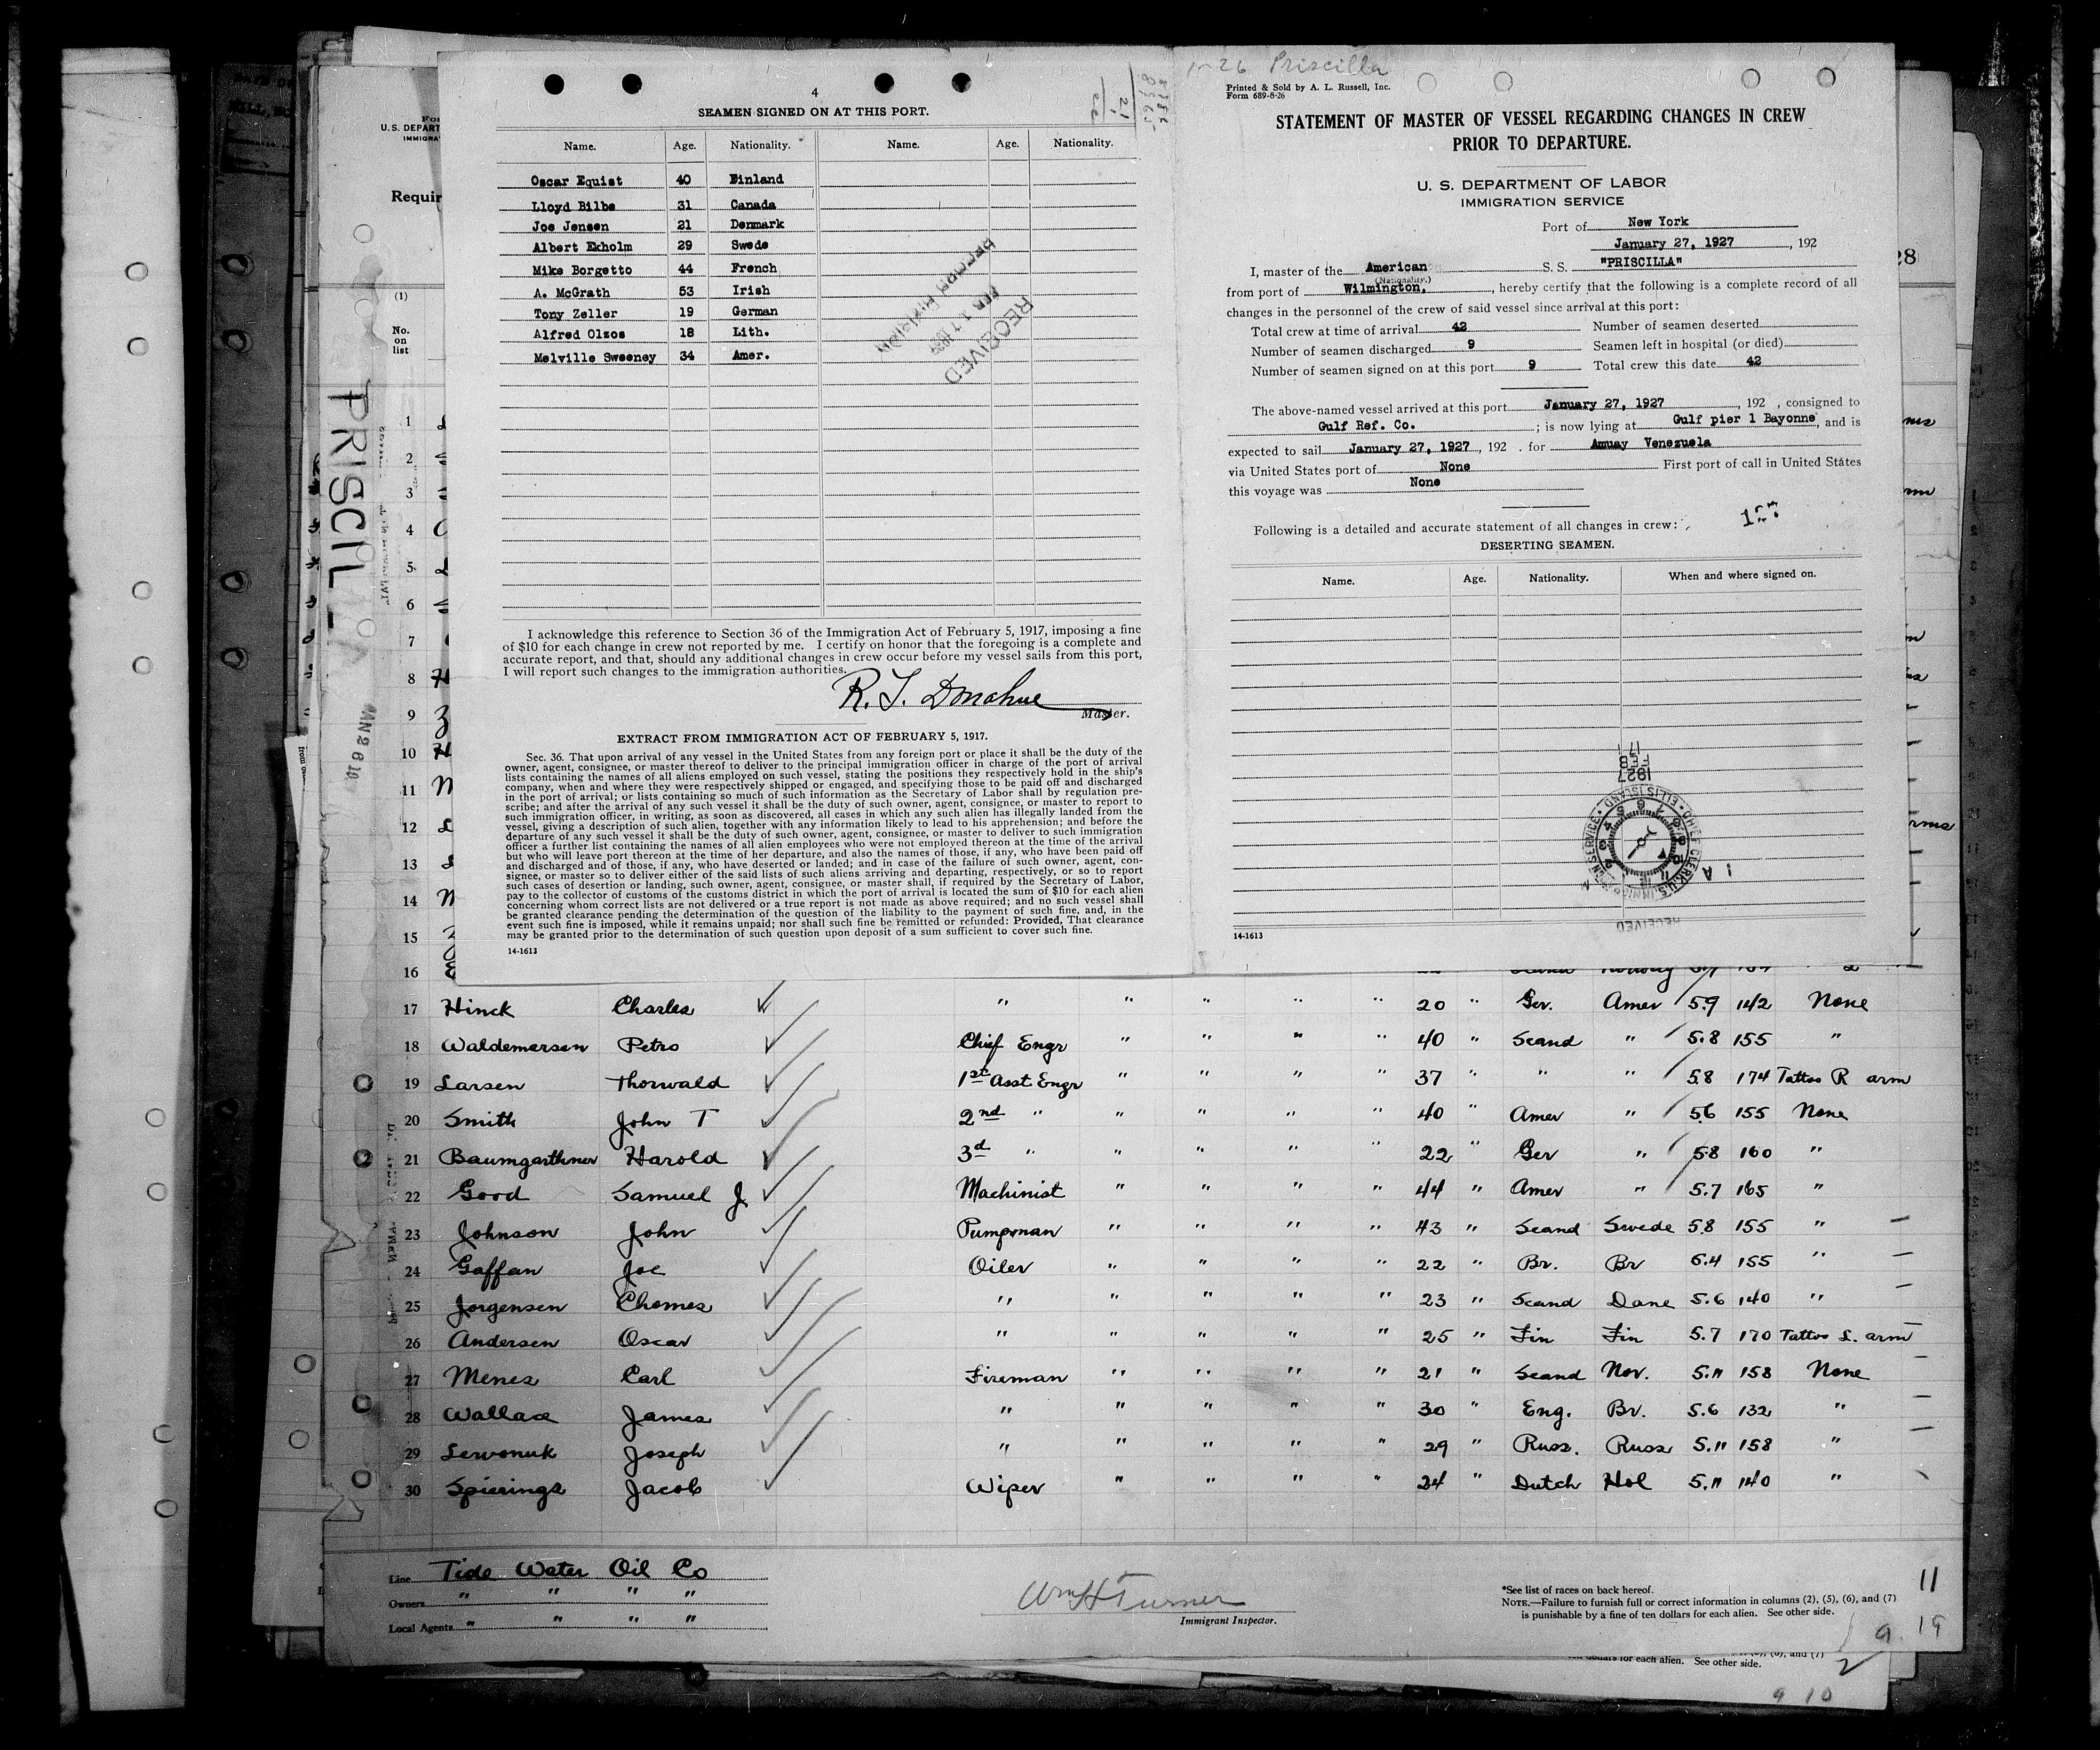 4
SEAMEN SIGNED ON AT THIS PORT.
Name. Age. Nationality. Name. Age. Nationality.
Oscar Equist 40 Finland
Lloyd Bilbe 31 Canada
Joe Jensen 21 Denmark
Albert Ekholm 29 Swede
Mike Borgetto 44 French
A. McGrath 53 Irish
Tony Zeller 19 German
Alfred Olzos 18 Lith.
Melville Sweeney 34 Amer.
RECORD DIVISION
FEB 17 1927
RECEIVED
I acknowledge this reference to Section 36 of the Immigration Act of February 5, 1917, imposing a fine
of $10 for each change in crew not reported by me. I certify on honor that the foregoing is a complete and
accurate report, and that, should any additional changes in crew occur before my vessel sails from this port,
I will report such changes to the immigration authorities.
R. J. Donahue
Master.
EXTRACT FROM IMMIGRATION ACT OF FEBRUARY 5, 1917.
Sec. 36. That upon arrival of any vessel in the United States from any foreign port or place it shall be the duty of the
owner, agent, consignee, or master thereof to deliver to the principal immigration officer in charge of the port of arrival
lists containing the names of all aliens employed on such vessel, stating the positions they respectively hold in the ship's
company, when and where they were respectively shipped or engaged, and specifying those to be paid off and discharged
in the port of arrival; or lists containing so much of such information as the Secretary of Labor shall by regulation pre-
scribe; and after the arrival of any such vessel it shall be the duty of such owner, agent, consignee, or master to report to
such immigration officer, in writing, as soon as discovered, all cases in which any such alien has illegally landed from the
vessel, giving a description of such alien, together with any information likely to lead to his apprehension; and before the
departure of any such vessel it shall be the duty of such owner, agent, consignee, or master to deliver to such immigration
officer a further list containing the names of all alien employees who were not employed thereon at the time of the arrival
but who will leave port thereon at the time of her departure, and also the names of those, if any, who have been paid off
and discharged and of those, if any, who have deserted or landed; and in case of the failure of such owner, agent, con-
signee, or master so to deliver either of the said lists of such aliens arriving and departing, respectively, or so to report
such cases of desertion or landing, such owner, agent, consignee, or master shall, if required by the Secretary of Labor,
pay to the collector of customs of the customs district in which the port of arrival is located the sum of $10 for each alien
concerning whom correct lists are not delivered or a true report is not made as above required; and no such vessel shall
be granted clearance pending the determination of the question of the liability to the payment of such fine, and, in the
event such fine is imposed, while it remains unpaid; nor shall such fine be remitted or refunded: Provided, That clearance
may be granted prior to the determination of such question upon deposit of a sum sufficient to cover such fine.
14-1613
1-26 Priscilla
Printed & Sold by A. L. Russell, Inc.
Form 689-8-26
STATEMENT OF MASTER OF VESSEL REGARDING CHANGES IN CREW
PRIOR TO DEPARTURE.
U. S. DEPARTMENT OF LABOR
IMMIGRATION SERVICE
Port of New York
January 27, 1927, 192
I, master of the American S. S. "PRISCILLA"
(Nationality.)
from port of Wilmington, , hereby certify that the following is a complete record of all
changes in the personnel of the crew of said vessel since arrival at this port:
Total crew at time of arrival 42 Number of seamen deserted
Number of seamen discharged 9 Seamen left in hospital (or died)
Number of seamen signed on at this port 9 Total crew this date 42
The above-named vessel arrived at this port January 27, 1927, 192 , consigned to
Gulf Ref. Co. ; is now lying at Gulf pier 1 Bayonne, and is
expected to sail January 27, 1927, 192 . for Amuay Venezuela
via United States port of None First port of call in United States
this voyage was None
Following is a detailed and accurate statement of all changes in crew:
DESERTING SEAMEN.
Name. Age. Nationality. When and where signed on.
17 FEB 1927
CHIEF CLERK U.S. IMMIGRATION SERVICE ELLIS ISLAND
RECEIVED
14-1613
U. S. DEPART
IMMIGRA
Requir
(1)
No. on list
PRISCILLA
28
1
2
3
4
5
6
7
8
9
10
11
12
13
14
15
16
17 Hinck Charles " " " " " 20 " Ger. Amer 5.9 142 None
18 Waldemarsen Petro Chief Engr " " " " 40 " Scand " 5.8 155 "
19 Larsen Thorwald 1st Asst Engr " " " " 37 " " " 5.8 174 Tattoo R arm
20 Smith John T 2nd " " " " " 40 " Amer " 5.6 155 None
21 Baumgarthner Harold 3d " " " " " 22 " Ger " 5.8 160 "
22 Good Samuel J Machinist " " " " 44 " Amer " 5.7 165 "
23 Johnson John Pumpman " " " " 43 " Scand Swede 5.8 155 "
24 Gaffan Joe Oiler " " " " 22 " Br. Br 6.4 155 "
25 Jorgensen Chomes " " " " " 23 " Scand Dane 5.6 140 "
26 Andersen Oscar " " " " " 25 " Fin Fin 5.7 170 Tattoo L. arm
27 Menes Carl Fireman " " " " 21 " Scand Nor. 5.11 158 None
28 Wallace James " " " " " 30 " Eng. Br. 5.6 132 "
29 Lewonuk Joseph " " " " " 29 " Russ. Russ 5.11 158 "
30 Spierings Jacob Wiper " " " " 24 " Dutch Hol 5.11 140 "
Line Tide Water Oil Co
Owners " " " "
Local Agents " " " "
Wm H Turner
Immigrant Inspector.
*See list of races on back hereof.
NOTE.—Failure to furnish full or correct information in columns (2), (5), (6), and (7)
is punishable by a fine of ten dollars for each alien. See other side.
11
9 19
for each alien. See other side.
9 10